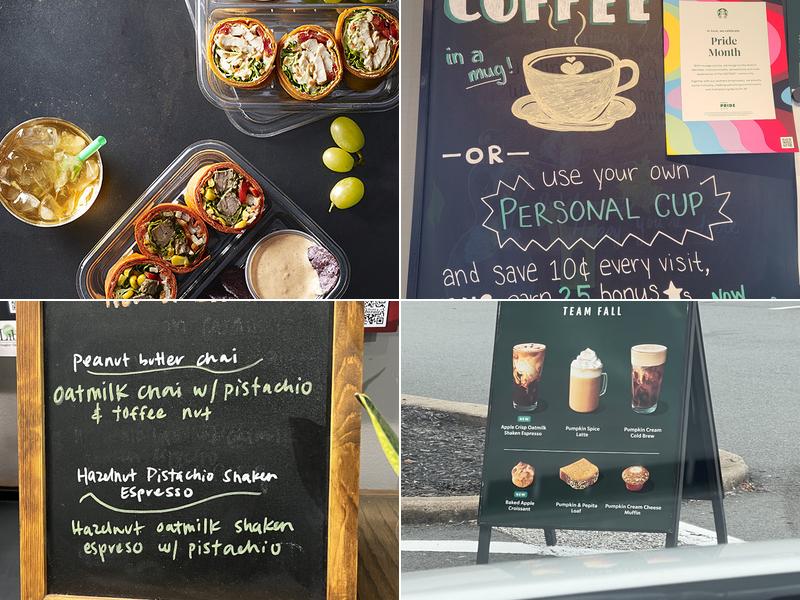 COFFEE
in a
mug!
Pride
Month
PRIDE
—OR—
use your own
PERSONAL CUP
and save 10¢ every visit,
earn 25 bonus Now
Peanut butter chai
Oatmilk chai w/ pistachio
& toffee nut
Hazelnut Pistachio Shaken
Espresso
Hazelnut oatmilk shaken
espreso w/ pistachio
TEAM FALL
NEW
Apple Crisp Oatmilk
Shaken Espresso
Pumpkin Spice
Latte
Pumpkin Cream
Cold Brew
NEW
Baked Apple
Croissant
Pumpkin & Pepita
Loaf
Pumpkin Cream Cheese
Muffin